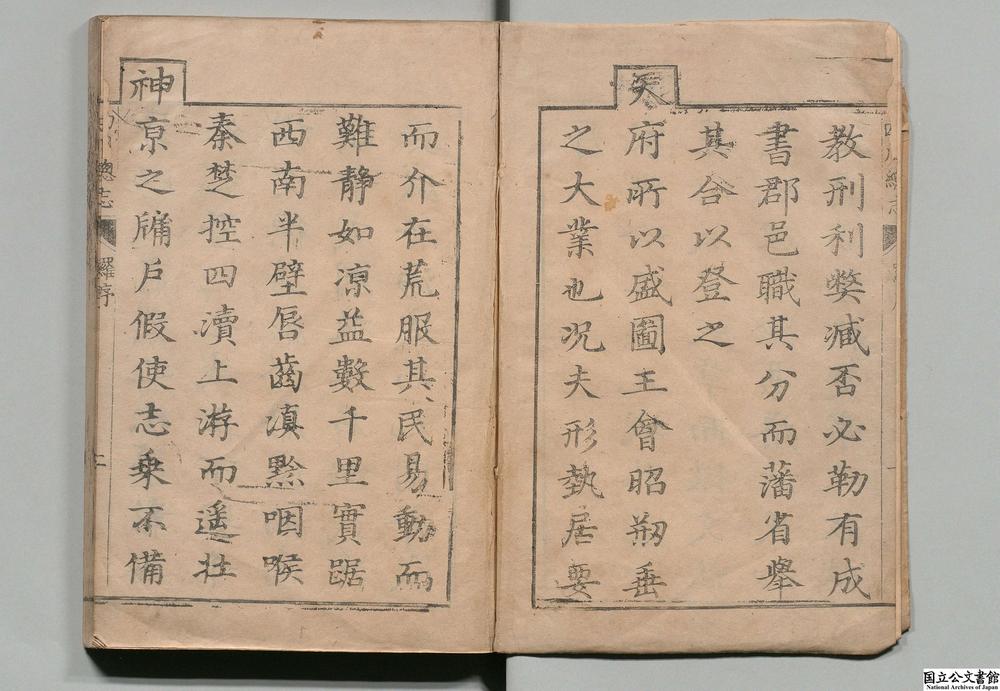 教刑利獘臧否必勒有成
書郡邑職其分而藩省舉
其合以登之
天
府所以盛圖王會昭刱垂
之大業也况夫形勢居要
而介在荒服其民易動而
難静如凉益數千里實踞
西南半壁唇齒滇黔咽喉
秦楚控四瀆上游而遥壮
神
京之牖户假使志乗不備
總志
羅序
国立公文書館
National Archives of Japan